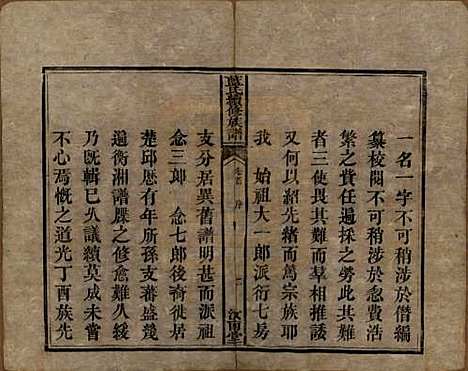 一名一字不可稍涉於僭編
纂校閱不可稍涉於怠費浩
繁之費任遍採之勞此其難
者三使畏其難而羣相推諉
又何以紹先緒而篤宗族耶
我 始祖大一郎派衍七房
藍氏續修族譜
卷首 序
汝南堂
支分居異舊譜明甚而派祖
念三郎 念七郎後裔徙居
楚邱歷有年所孫支蕃盛幾
遍衡湘譜牒之修愈難久緩
乃既輯巳久議續莫成未嘗
不心焉慨之道光丁酉族先